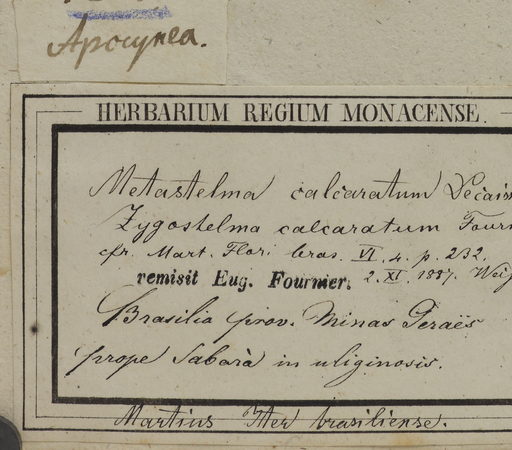 Apocynea.
HERBARIUM REGIUM MONACENSE.
Metastelma calcaratum Decais
Zygostelma calcaratum Fourn
cfr. Mart. Flor. bras. VI. 4. p. 232.
remisit Eug. Fournier. 2. XI. 1887.
Brasilia prov. Minas Geraës
prope Sabarà in uliginosis.
Martius Iter brasiliense.